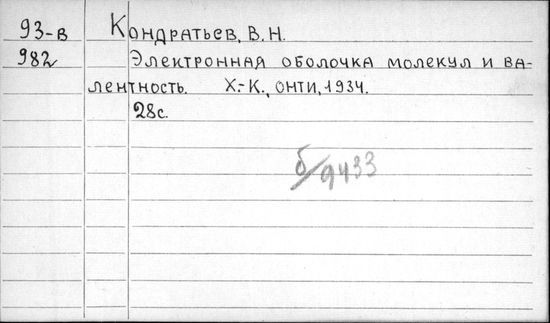 93-в Кондратьев, В. Н.
982 Электронная оболочка молекул и ва-
лентность. Х.-К., ОНТИ, 1934.
28с.
б/9433